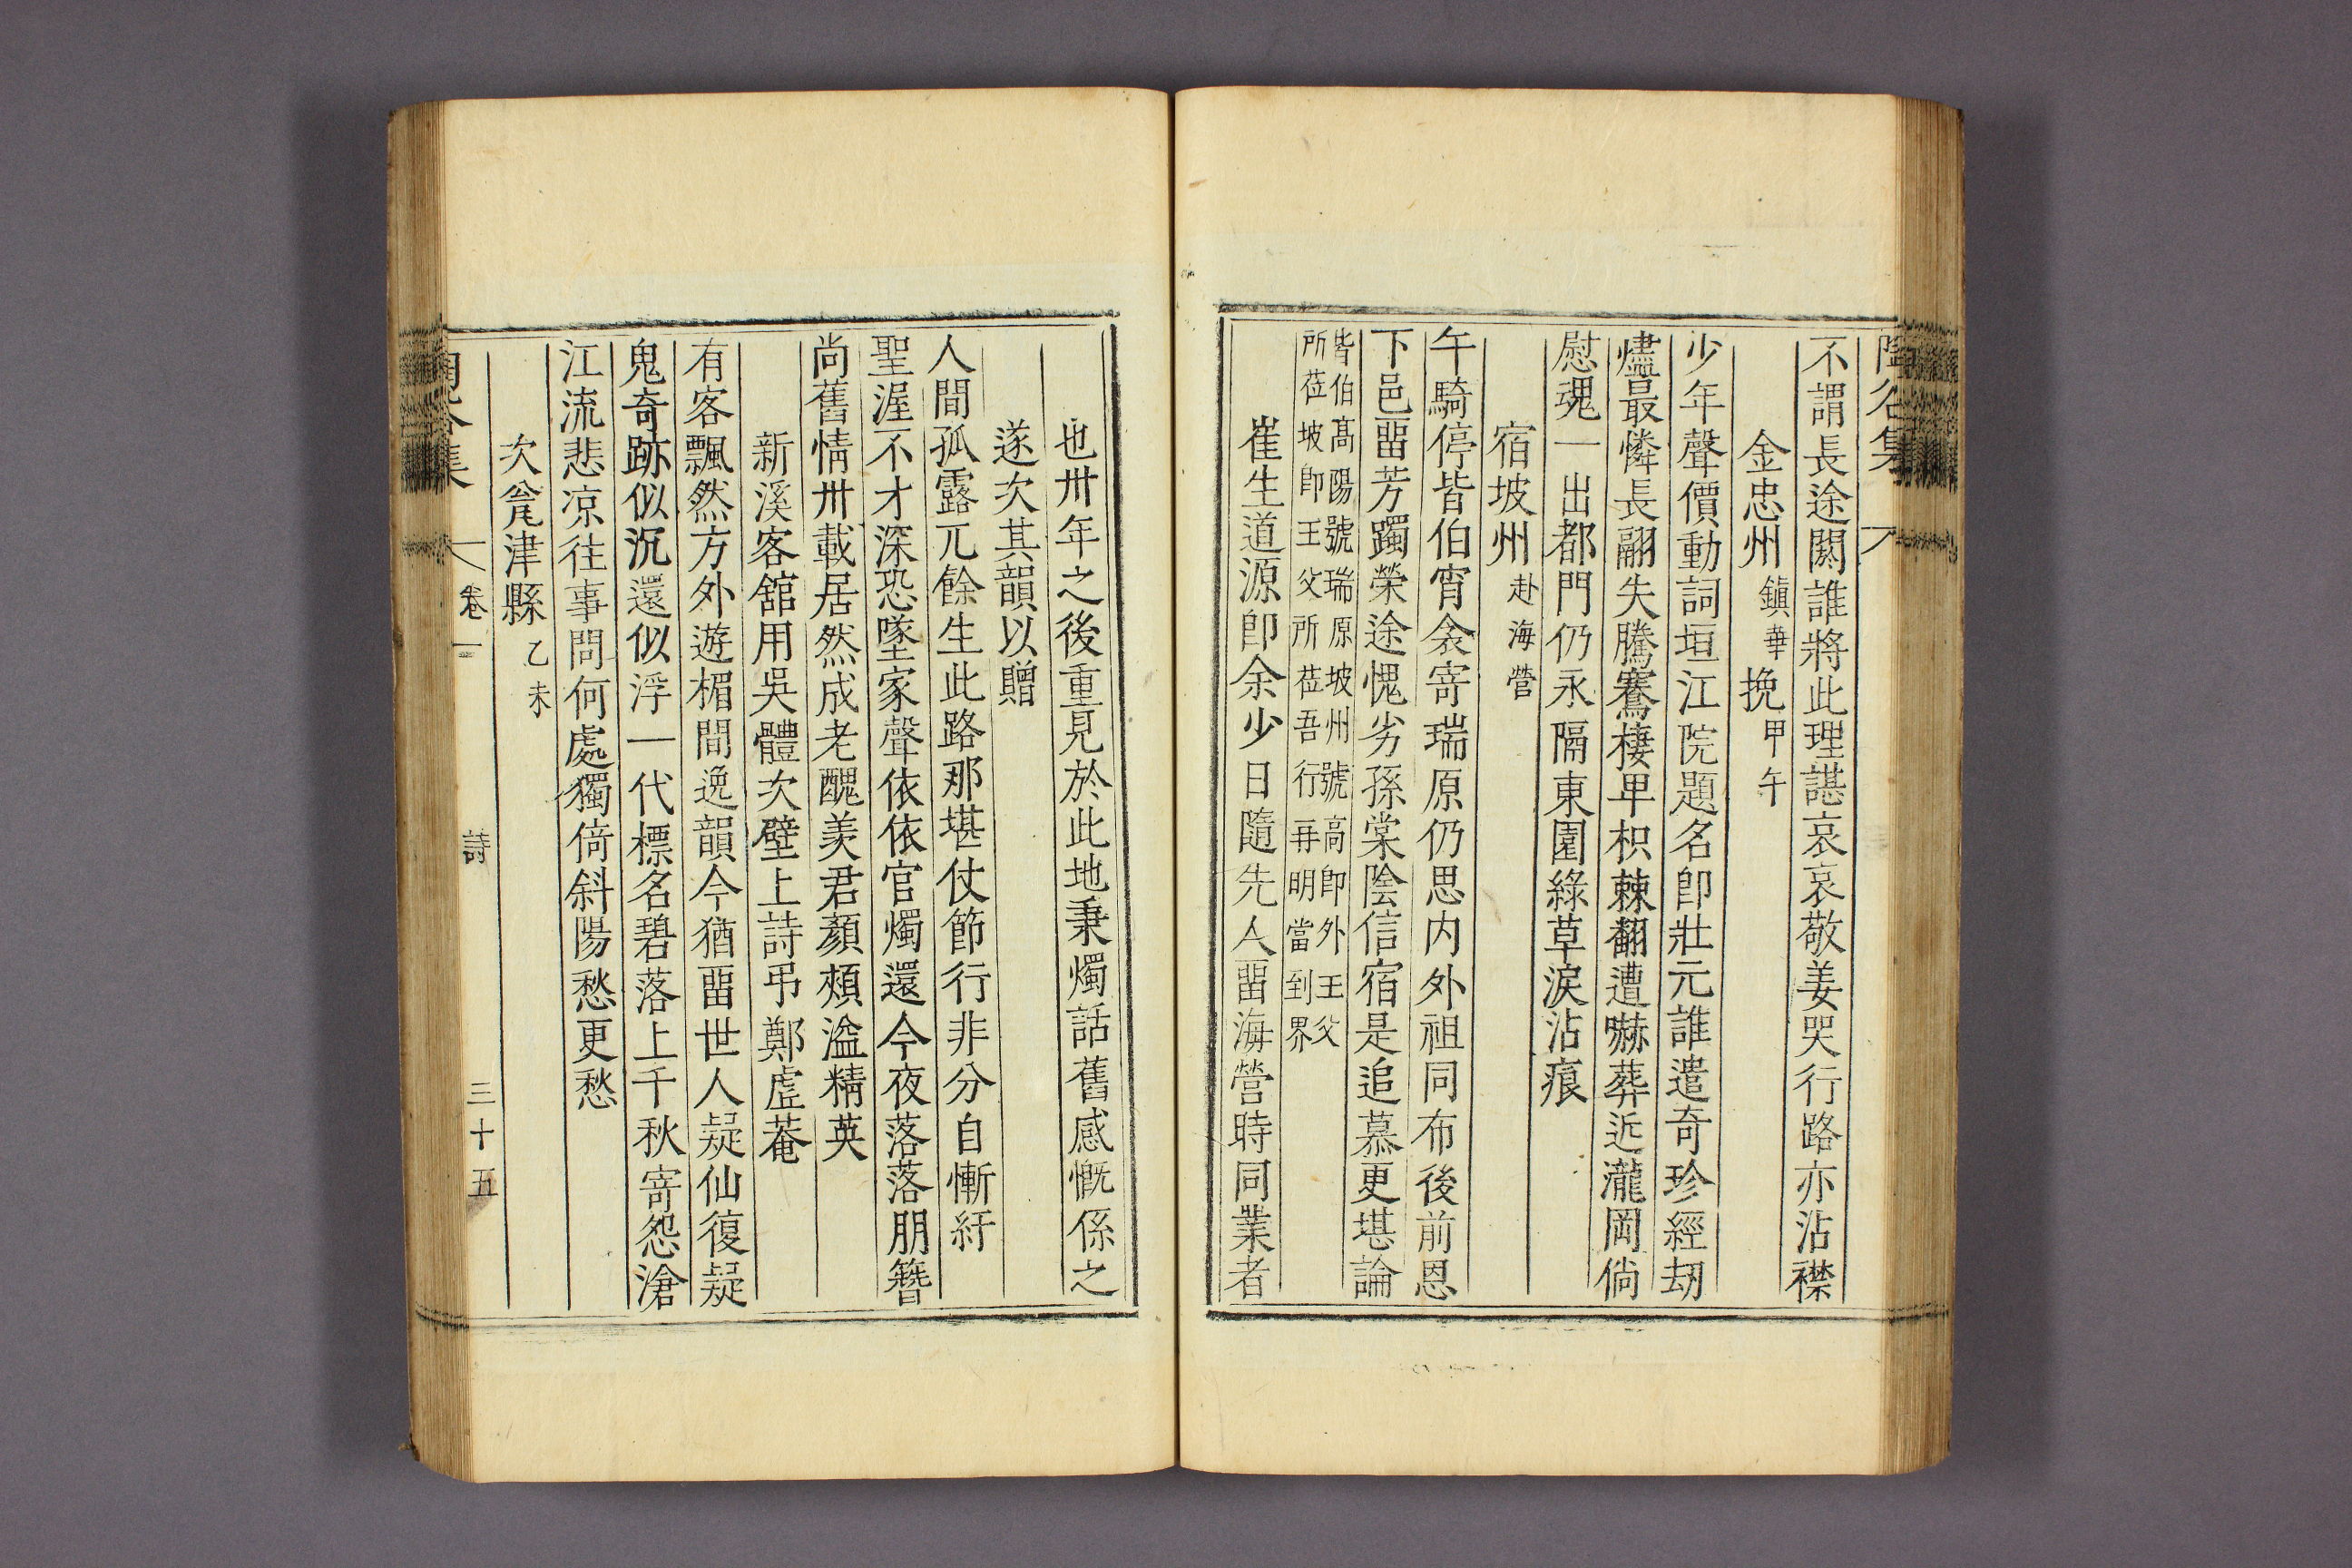 不謂長途閼誰將此理諶哀哀敬姜哭行路亦沾襟
金忠州鎭華挽甲午
少年聲價動詞垣江院題名卽壯元誰遣奇珍經刼
燼最憐長翮失騰騫棲卑枳棘翻遭嚇葬近瀧岡倘
慰魂一出都門仍永隔東園綠草淚沾痕
宿坡州赴海營
午騎停皆伯宵衾寄瑞原仍思內外祖同布後前恩
下邑畱芳躅榮途愧劣孫棠陰信宿是追慕更堪論
皆伯高陽號瑞原坡州號高卽外王父
所莅坡卽王父所莅吾行再明當到界
崔生道源卽余少日隨先人畱海營時同業者
也卅年之後重見於此地秉燭話舊感慨係之
遂次其韻以贈
人間孤露兀餘生此路那堪仗節行非分自慚紆
聖渥不才深恐墜家聲依依官燭還今夜落落朋簪
尚舊情卅載居然成老醜羨君顏頰溢精英
新溪客舘用吳體次壁上詩弔鄭虛菴
有客飄然方外遊楣間逸韻今猶畱世人疑仙復疑
鬼奇跡似沉還似浮一代標名碧落上千秋寄怨滄
江流悲凉往事問何處獨倚斜陽愁更愁
次瓮津縣乙未
卷一
詩
三十五